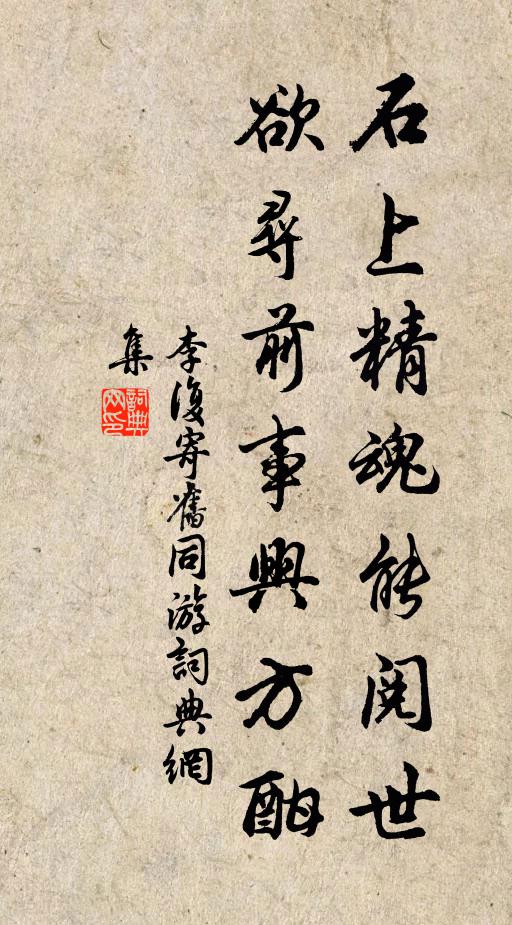 石上精魂能閱世
欲尋前事興方酣
李復寄舊同游詞典網
集
詞典
网印